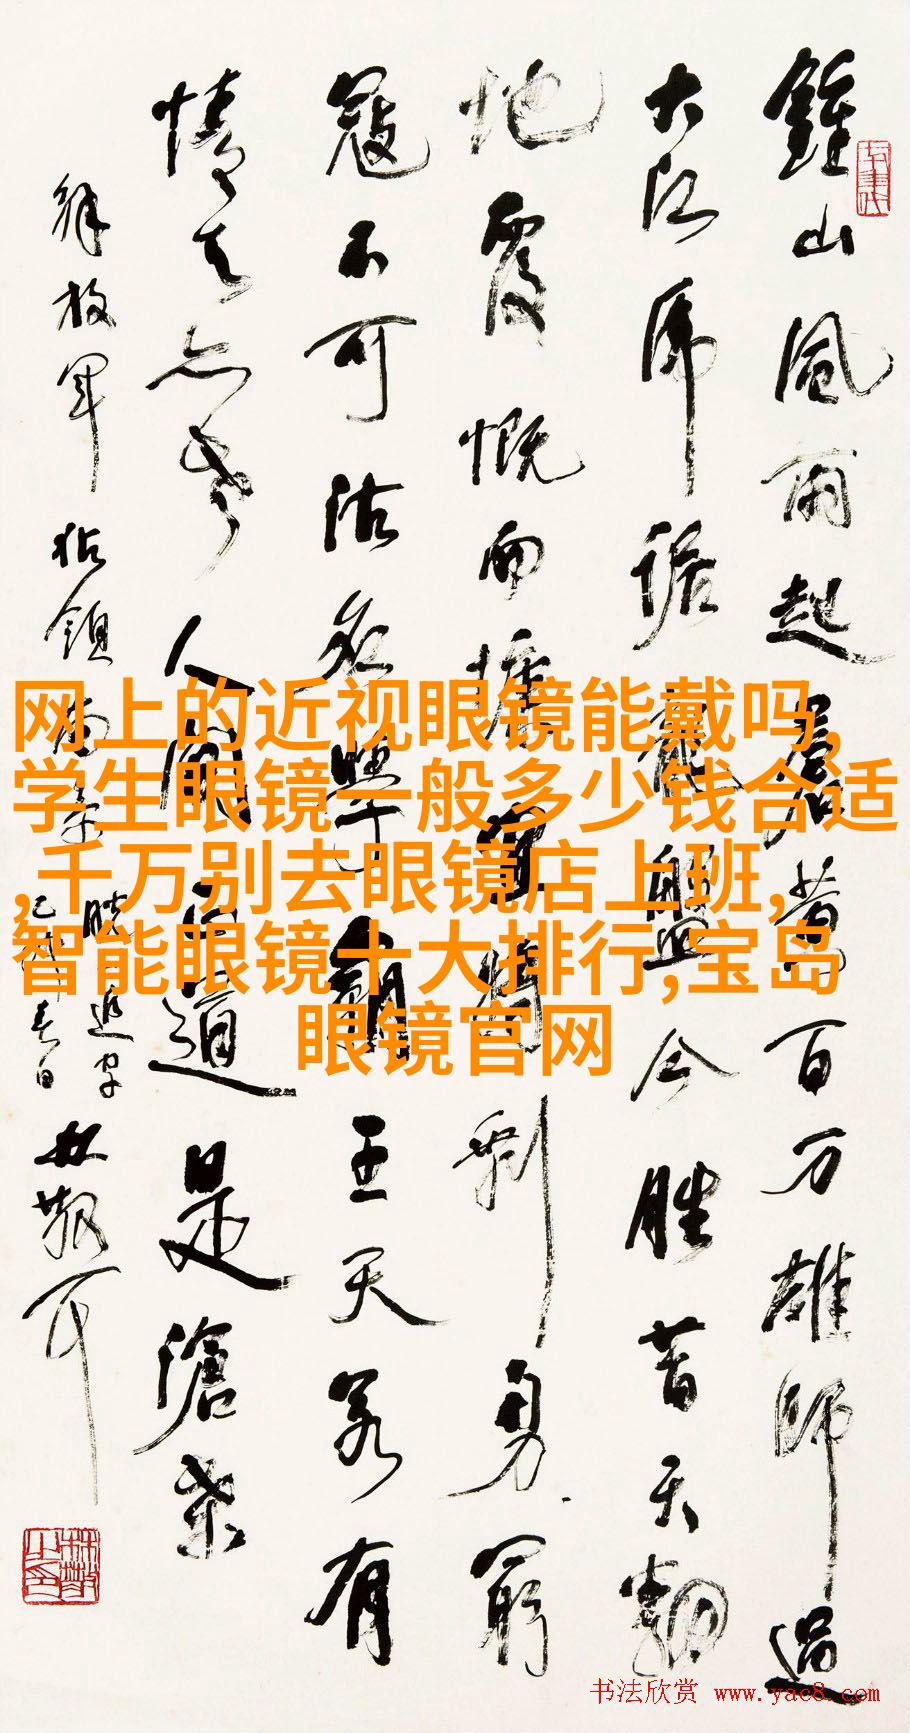 鍾山風雨起蒼黄百万雄師過
大江虎踞龍盤今勝昔天翻
地覆慨而慷宜將剩勇窮
寇不可沽名學霸王天若有
情天亦老人間正道是滄桑
解放軍佔領南京
脱追字
春日
林散耳
网上的近视眼镜能戴吗,
学生眼镜一般多少钱合适
,千万别去眼镜店上班,
智能眼镜十大排行,宝岛
眼镜官网
书法欣赏 www.yac8.com